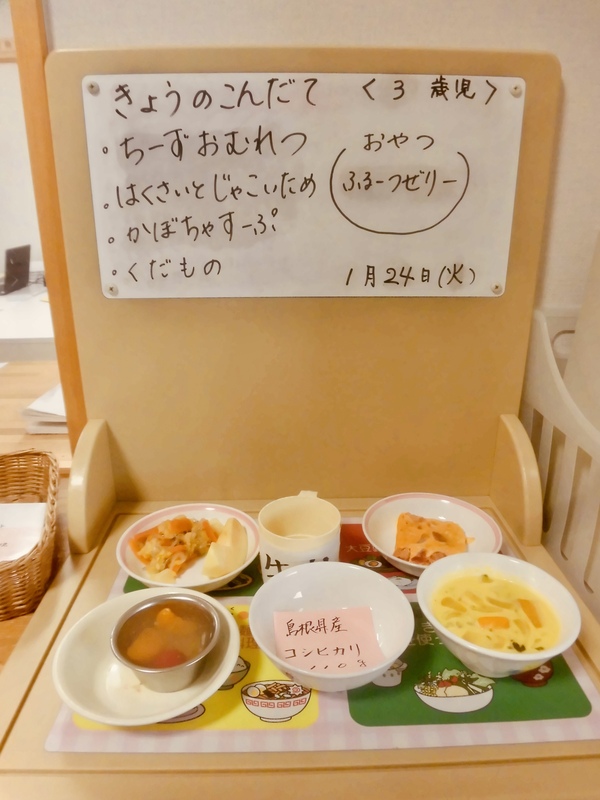 きょうのこんだて 〈3歳児〉
・ちーずおむれつ
・はくさいとじゃこいため
・かぼちゃすーぷ
・くだもの
おやつ
ふるーつぜりー
1月24日(火)
大豆
島根県産
コシヒカリ
110g